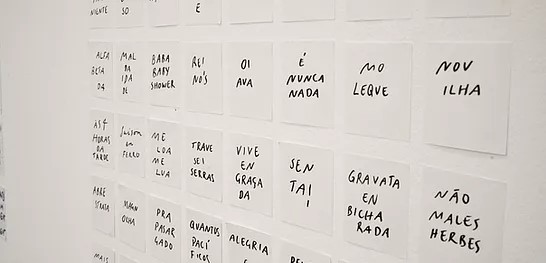 NIENTE
SO
E
ALFA
BETA
04
MAL
DA
IDA
DE
BABA
BABY
SHOWER
REI
NÓS
OI
AVA
É
NUNCA
NADA
MO
LEQUE
NOV
ILHA
ÀS 4
HORAS
DA
TARDE
FERRO
ME
LOA
ME
LUA
TRAVE
SEI
SERRAS
VIVE
EN
GRAÇA
DA
SEN
TAI
!
GRAVATA
EN
BICHA
RADA
NÃO
MALES
HERBES
ABRE
MAGN
OLHA
PRA
PASAR
GADO
QUANTOS
PACÍ
FICOS
ALEGRIA
E
MAIS